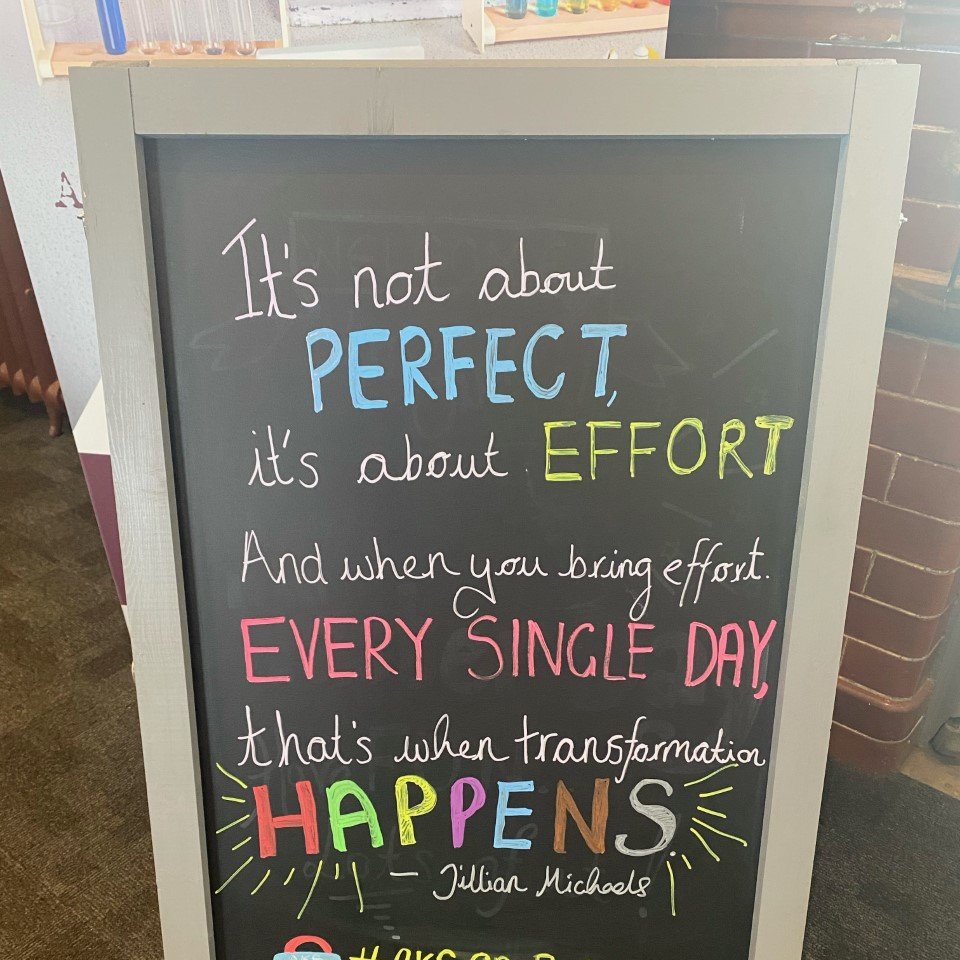 It's not about
PERFECT,
it's about EFFORT
And when you bring effort.
EVERY SINGLE DAY,
that's when transformation
HAPPENS.
— Jillian Michaels